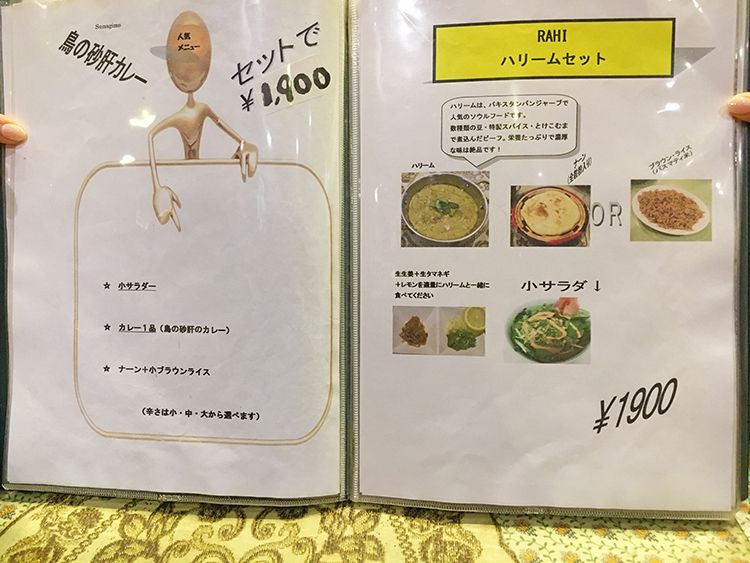 Sunagimo
鳥の砂肝カレー
人気
メニュー
セットで
¥1,900
☆ 小サラダー
☆ カレー1品(鳥の砂肝のカレー)
☆ ナーン+小ブラウンライス
(辛さは小・中・大から選べます)
RAHI
ハリームセット
ハリームは、パキスタンパンジャーブで
人気のソウルフードです。
数種類の豆・特製スパイス・とけこむま
で煮込んだビーフ。栄養たっぷりで濃厚
な味は絶品です!
ハリーム
ナーン
(全粒粉入り)
OR
ブラウン・ライス
(バスマティ米)
生生姜+生タマネギ
+レモンを適量にハリームと一緒に
食べてください
小サラダ↓
¥1900